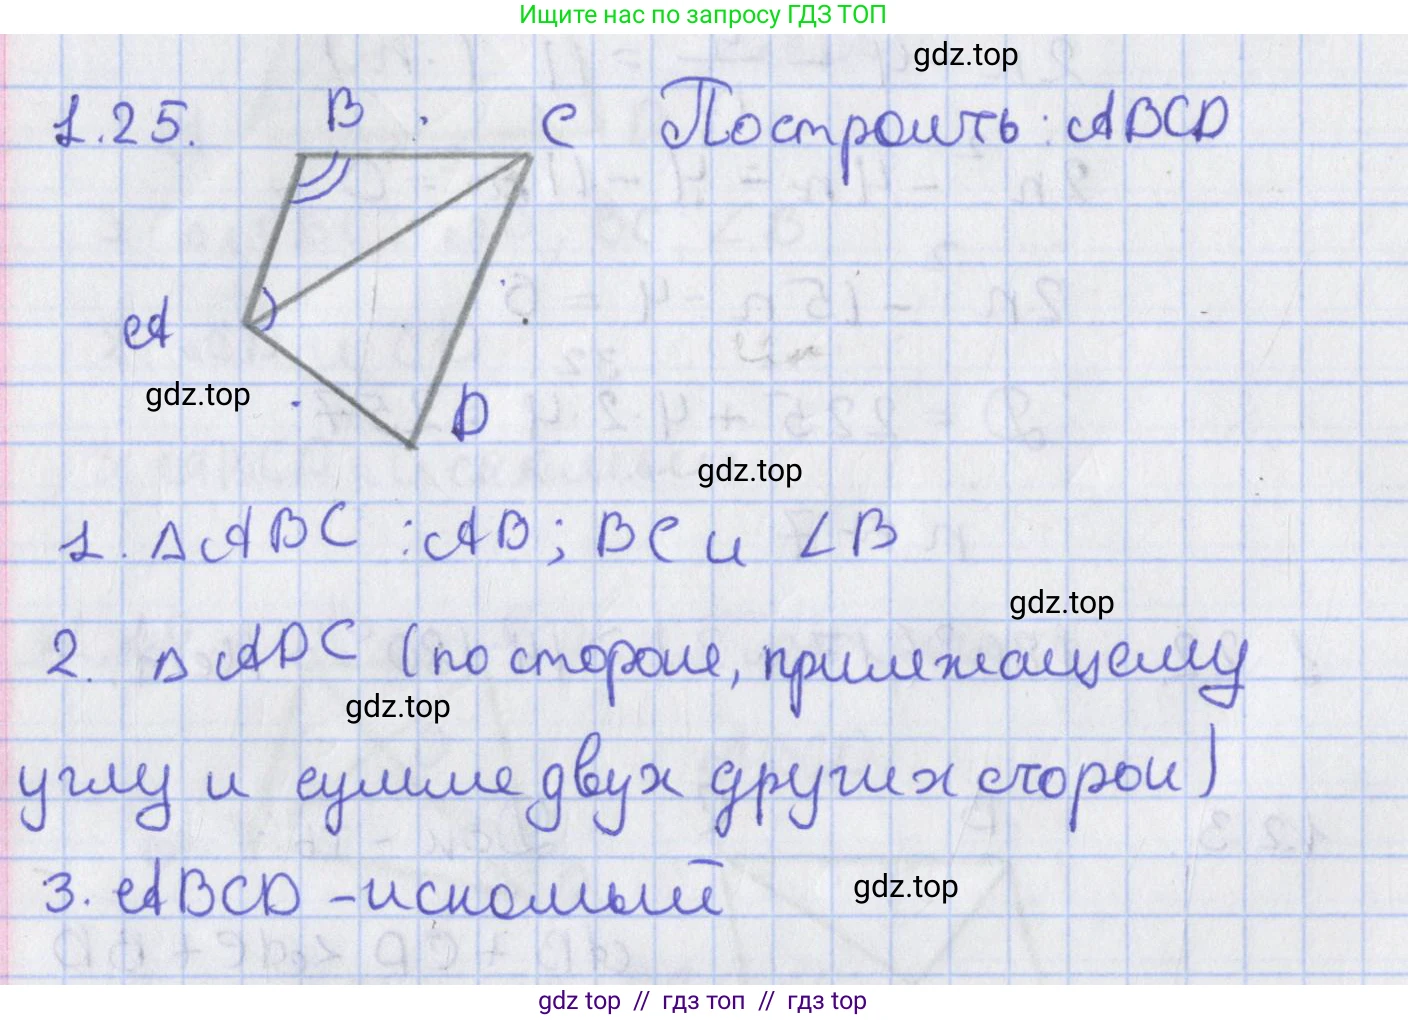 Ищите нас по запросу ГДЗ ТОП
gdz.top
1.25. B C Построить: ABCD
A
gdz.top
D
gdz.top
1. △ ABC : AB; BC и ∠B
gdz.top
2. △ ADC (по стороне, прилежащему
gdz.top
углу и сумме двух других сторон)
3. ABCD - искомый
gdz.top
gdz top // гдз топ // гдз top